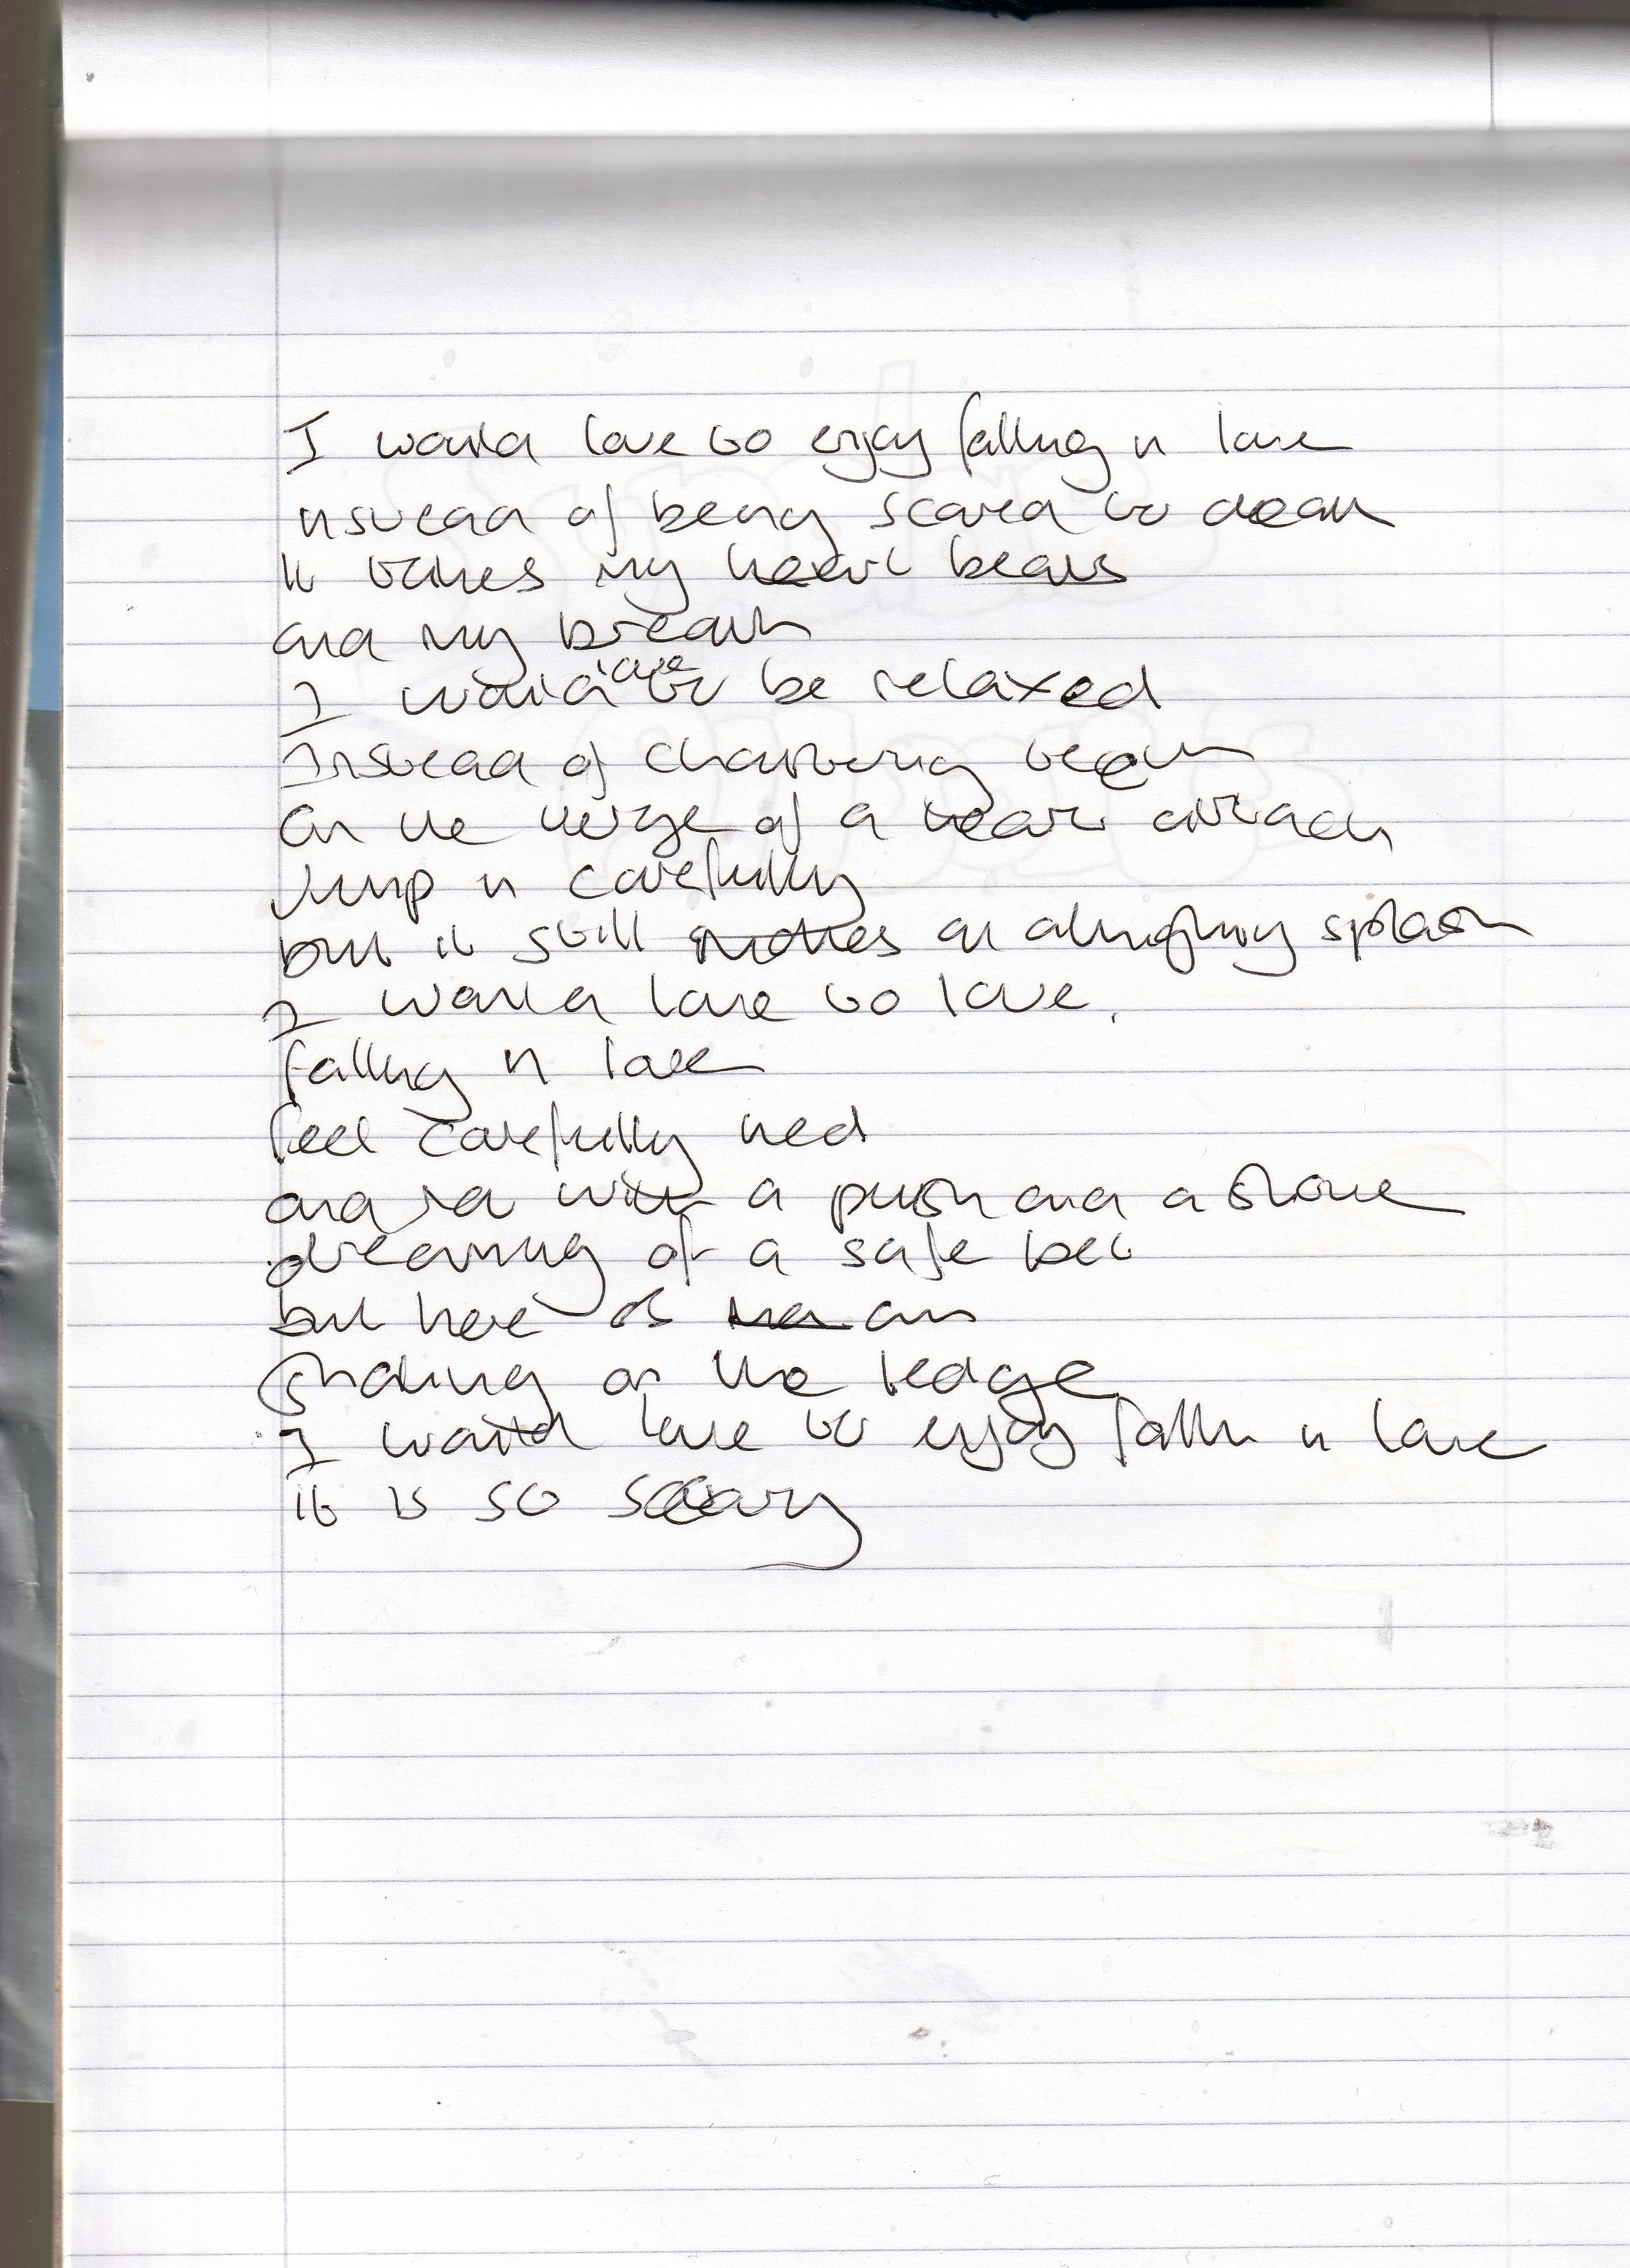 I would love to enjoy falling in love
instead of being scared to death
It takes my heart beats
and my breath
I would love to be relaxed
Instead of chattering teeth
on the verge of a heart attack
Jump in carefully
but it still makes an almighty splash
I would love to love,
falling in love
feel carefully
and with a push and a shove
dreaming of a safe bet
but here
on the ledge
I would love to enjoy fallin in love
it is so scary